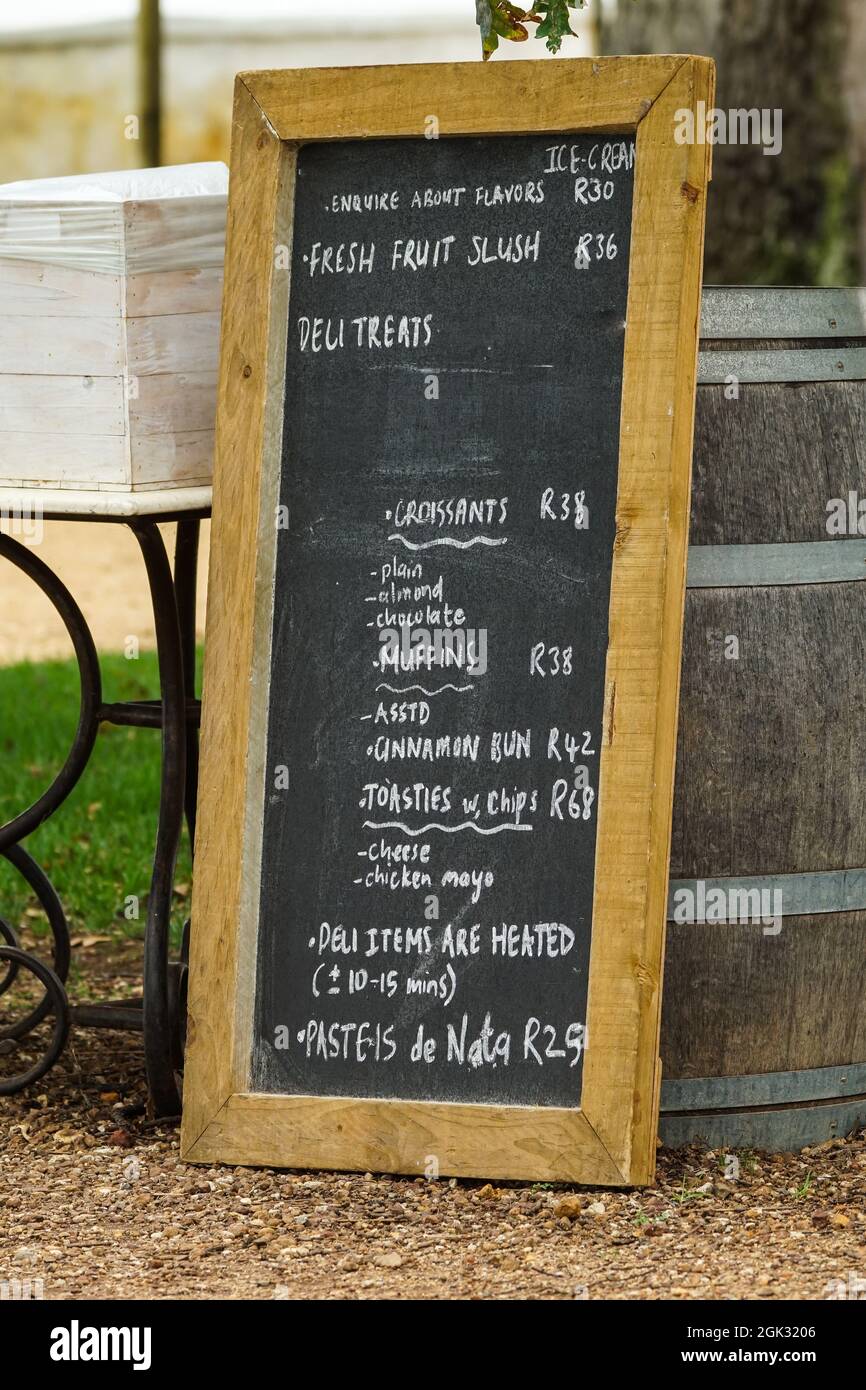 ICE-CREAM
•ENQUIRE ABOUT FLAVORS R30
•FRESH FRUIT SLUSH R36
DELI TREATS
•CROISSANTS R38
-plain
-almond
-chocolate
•MUFFINS R38
-ASSTD
•CINNAMON BUN R42
•TOASTIES w, chips R68
-cheese
-chicken mayo
•DELI ITEMS ARE HEATED
(± 10-15 mins)
•PASTEIS de Nata R29
alamy
Image ID: 2GK3206
www.alamy.com